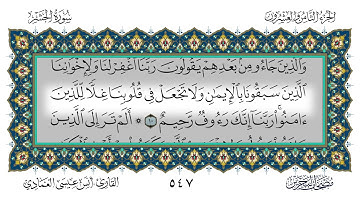 الجزء الثامن والعشرون
سورة الحشر
وَالَّذِينَ جَاءُو مِنۢ بَعْدِهِمْ يَقُولُونَ رَبَّنَا اغْفِرْ لَنَا وَلِإِخْوَانِنَا
الَّذِينَ سَبَقُونَا بِالْإِيمَانِ وَلَا تَجْعَلْ فِي قُلُوبِنَا غِلًّا لِّلَّذِينَ
ءَامَنُوا رَبَّنَا إِنَّكَ رَءُوفٌ رَّحِيمٌ ١٠ ۞ أَلَمْ تَرَ إِلَى الَّذِينَ
القارئ: أنس عيسى العمادي
٥٤٧